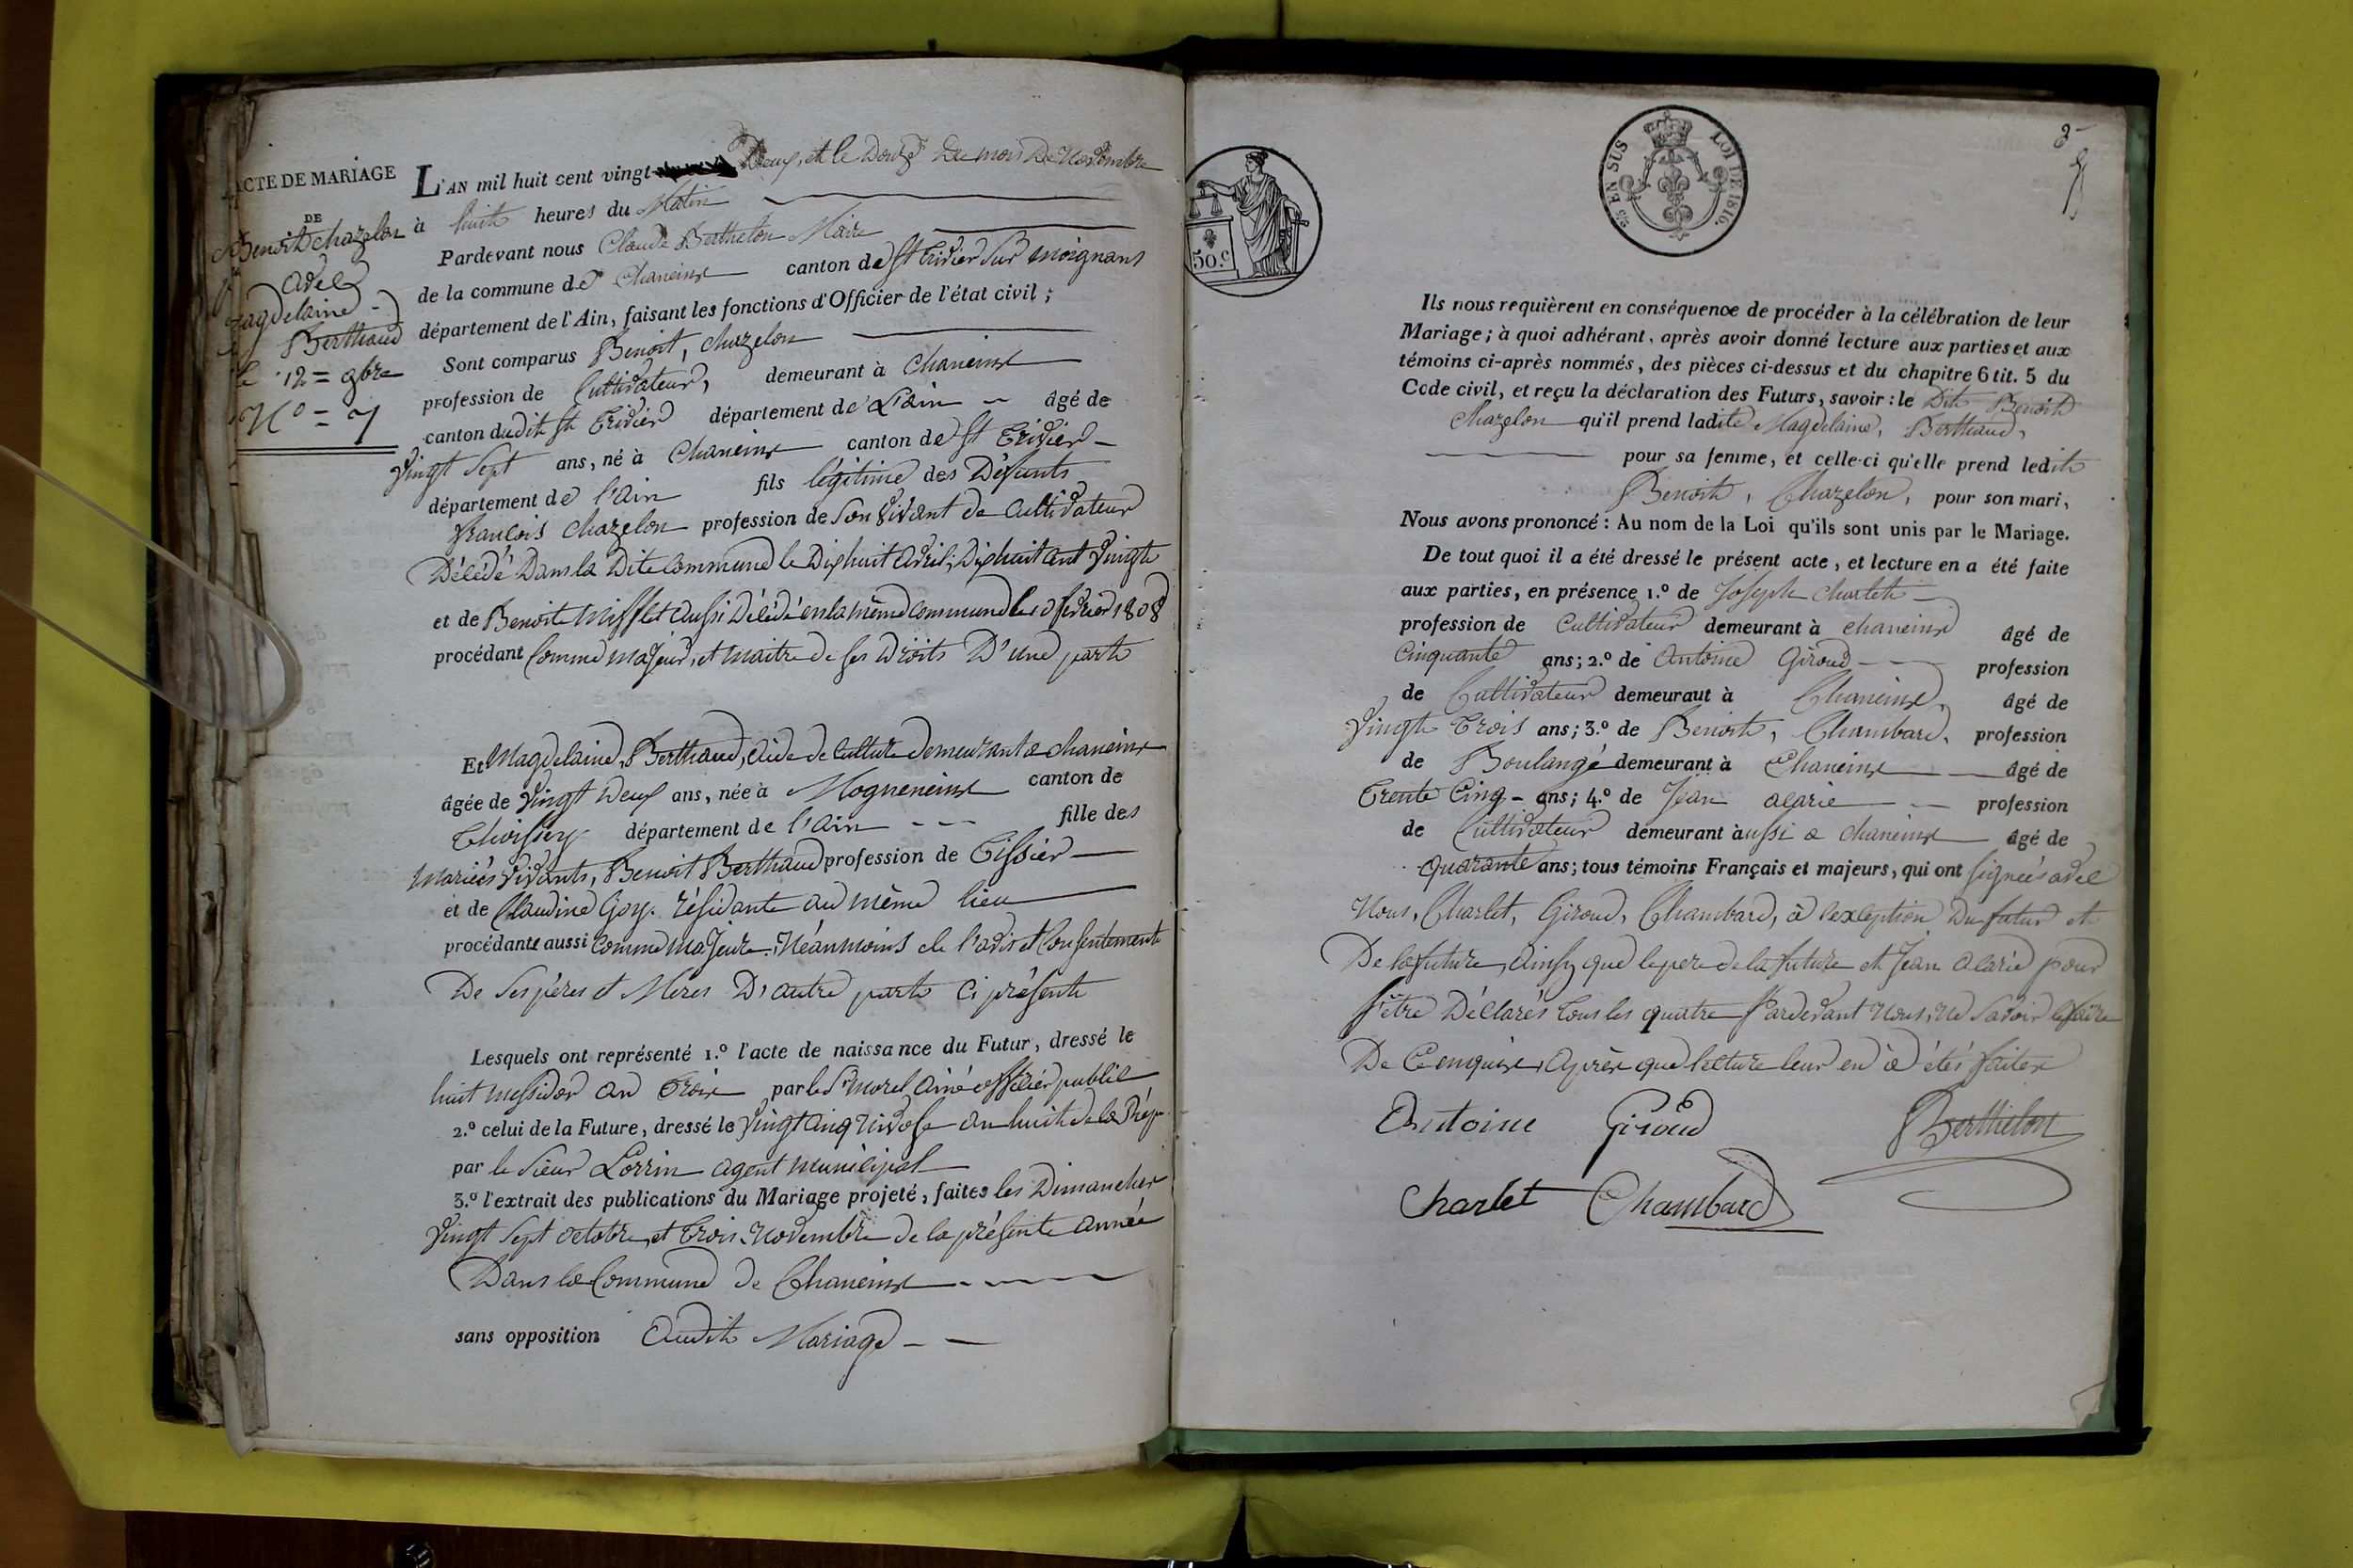 ACTE DE MARIAGE
DE
Benoit chazelon
avec
Magdelaine
Berthaud
le 12 = 9bre
N.º = 7
L'AN mil huit cent vingt Deux, et le Douze du mois De Novembre
à huit heures du Matin
Pardevant nous Claude Berthelon Maire
de la commune de Chaneins canton de St Trivier Sur Moignans
département de l'Ain, faisant les fonctions d'Officier de l'état civil ;
Sont comparus Benoit, chazelon
profession de Cultivateur, demeurant à Chaneins
canton dudit St Trivier département de L'ain âgé de
Vingt Sept ans, né à Chaneins canton de St Trivier
département de l'ain fils légitime des Défunts
François chazelon profession de Son Vivant de Cultivateur
Décédé Dans la Dite Commune le Dix huit Avril, Dix huit Cent Vingt
et de Benoite Mifflet aussi Décédé en la même Commune le février 1808
procédant Comme Majeur, et Maitre de Ses Droits D'une part
Et Magdelaine, Berthaud, aide de Culture demeurant a chaneins
âgée de Vingt Deux ans, née à Mogneneins canton de
Thoissey département de l'ain fille des
Mariés Vivants, Benoit Berthaud profession de Tissier
et de Claudine Goy. résidante au même lieu
procédante aussi Comme Majeure. Néanmoins de l'avis et Consentement
De Ses pères et Meres D'autre part Ci présents
Lesquels ont représenté 1.º l'acte de naissance du Futur, dressé le
huit Messidor an Trois par le Sr Morel Ainé officier public
2.º celui de la Future, dressé le Vingt Cinq Nivose an huit de la Rép.
par le Sieur Lorrin agent Municipal
3.º l'extrait des publications du Mariage projeté, faites les Dimanches
Vingt Sept Octobre, et Trois Novembre de la présente année
Dans la Commune de Chaneins
sans opposition Audit Mariage
25 EN SUS LOI DE 1816.
50.c
Ils nous requièrent en conséquence de procéder à la célébration de leur
Mariage ; à quoi adhérant, après avoir donné lecture aux parties et aux
témoins ci-après nommés, des pièces ci-dessus et du chapitre 6 tit. 5 du
Code civil, et reçu la déclaration des Futurs, savoir : le Dit Benoit
Chazelon qu'il prend ladite Magdelaine, Berthaud,
pour sa femme, et celle-ci qu'elle prend ledit
Benoit, Chazelon, pour son mari,
Nous avons prononcé : Au nom de la Loi qu'ils sont unis par le Mariage.
De tout quoi il a été dressé le présent acte, et lecture en a été faite
aux parties, en présence 1.º de Joseph Charlet
profession de Cultivateur demeurant à chaneins âgé de
Cinquante ans ; 2.º de Antoine Giroud profession
de Cultivateur demeuraut à Chaneins, âgé de
Vingt Trois ans ; 3.º de Benoit, Chambard, profession
de Boulangé demeurant à Chaneins âgé de
Trente Cinq ans ; 4.º de Jean alarie profession
de Cultivateur demeurant aussi a chaneins âgé de
quarante ans ; tous témoins Français et majeurs, qui ont signés avec
Nous, Charlet, Giroud, Chambard, à l'exception Du futur et
De la future, Ainsy que le pere de la future et Jean alarie pour
S'être Déclarés Tous les quatre Pardevant Nous, Ne Savoir le faire
De Ce enquis, Après que lecture leur en à étés faites
Antoine Giroud Berthelon
Charlet Chambard